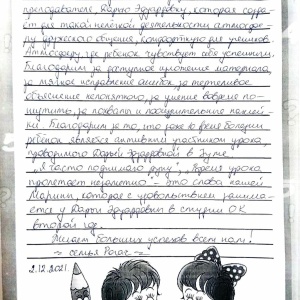 преподавателя, Дарью Эдуардовну, которая созда-
ёт для такой нелёгкой деятельности атмосфе-
ру дружеского общения, комфортную для учеников.
Атмосферу, где ребёнок чувствует себя успешным.
Благодарим за доступное изложение материала,
за мягкое исправление ошибок, за терпеливое
объяснение непонятного, за умение вовремя по-
шутить, за похвалу и поощрительные
Благодарим за то, что даже во время болезни
ребёнок являлся активным участником урока
проводимого Дарьей Эдуардовной в Зуме.
„Я часто поднимаю руку", „Время урока
пролетает незаметно" - это слова нашей
Марины, которая с удовольствием занима-
ется у Дарьи Эдуардовны в студии ОК
второй год.
Желаем больших успехов всем нам!
~ семья ~
2.12.2021.